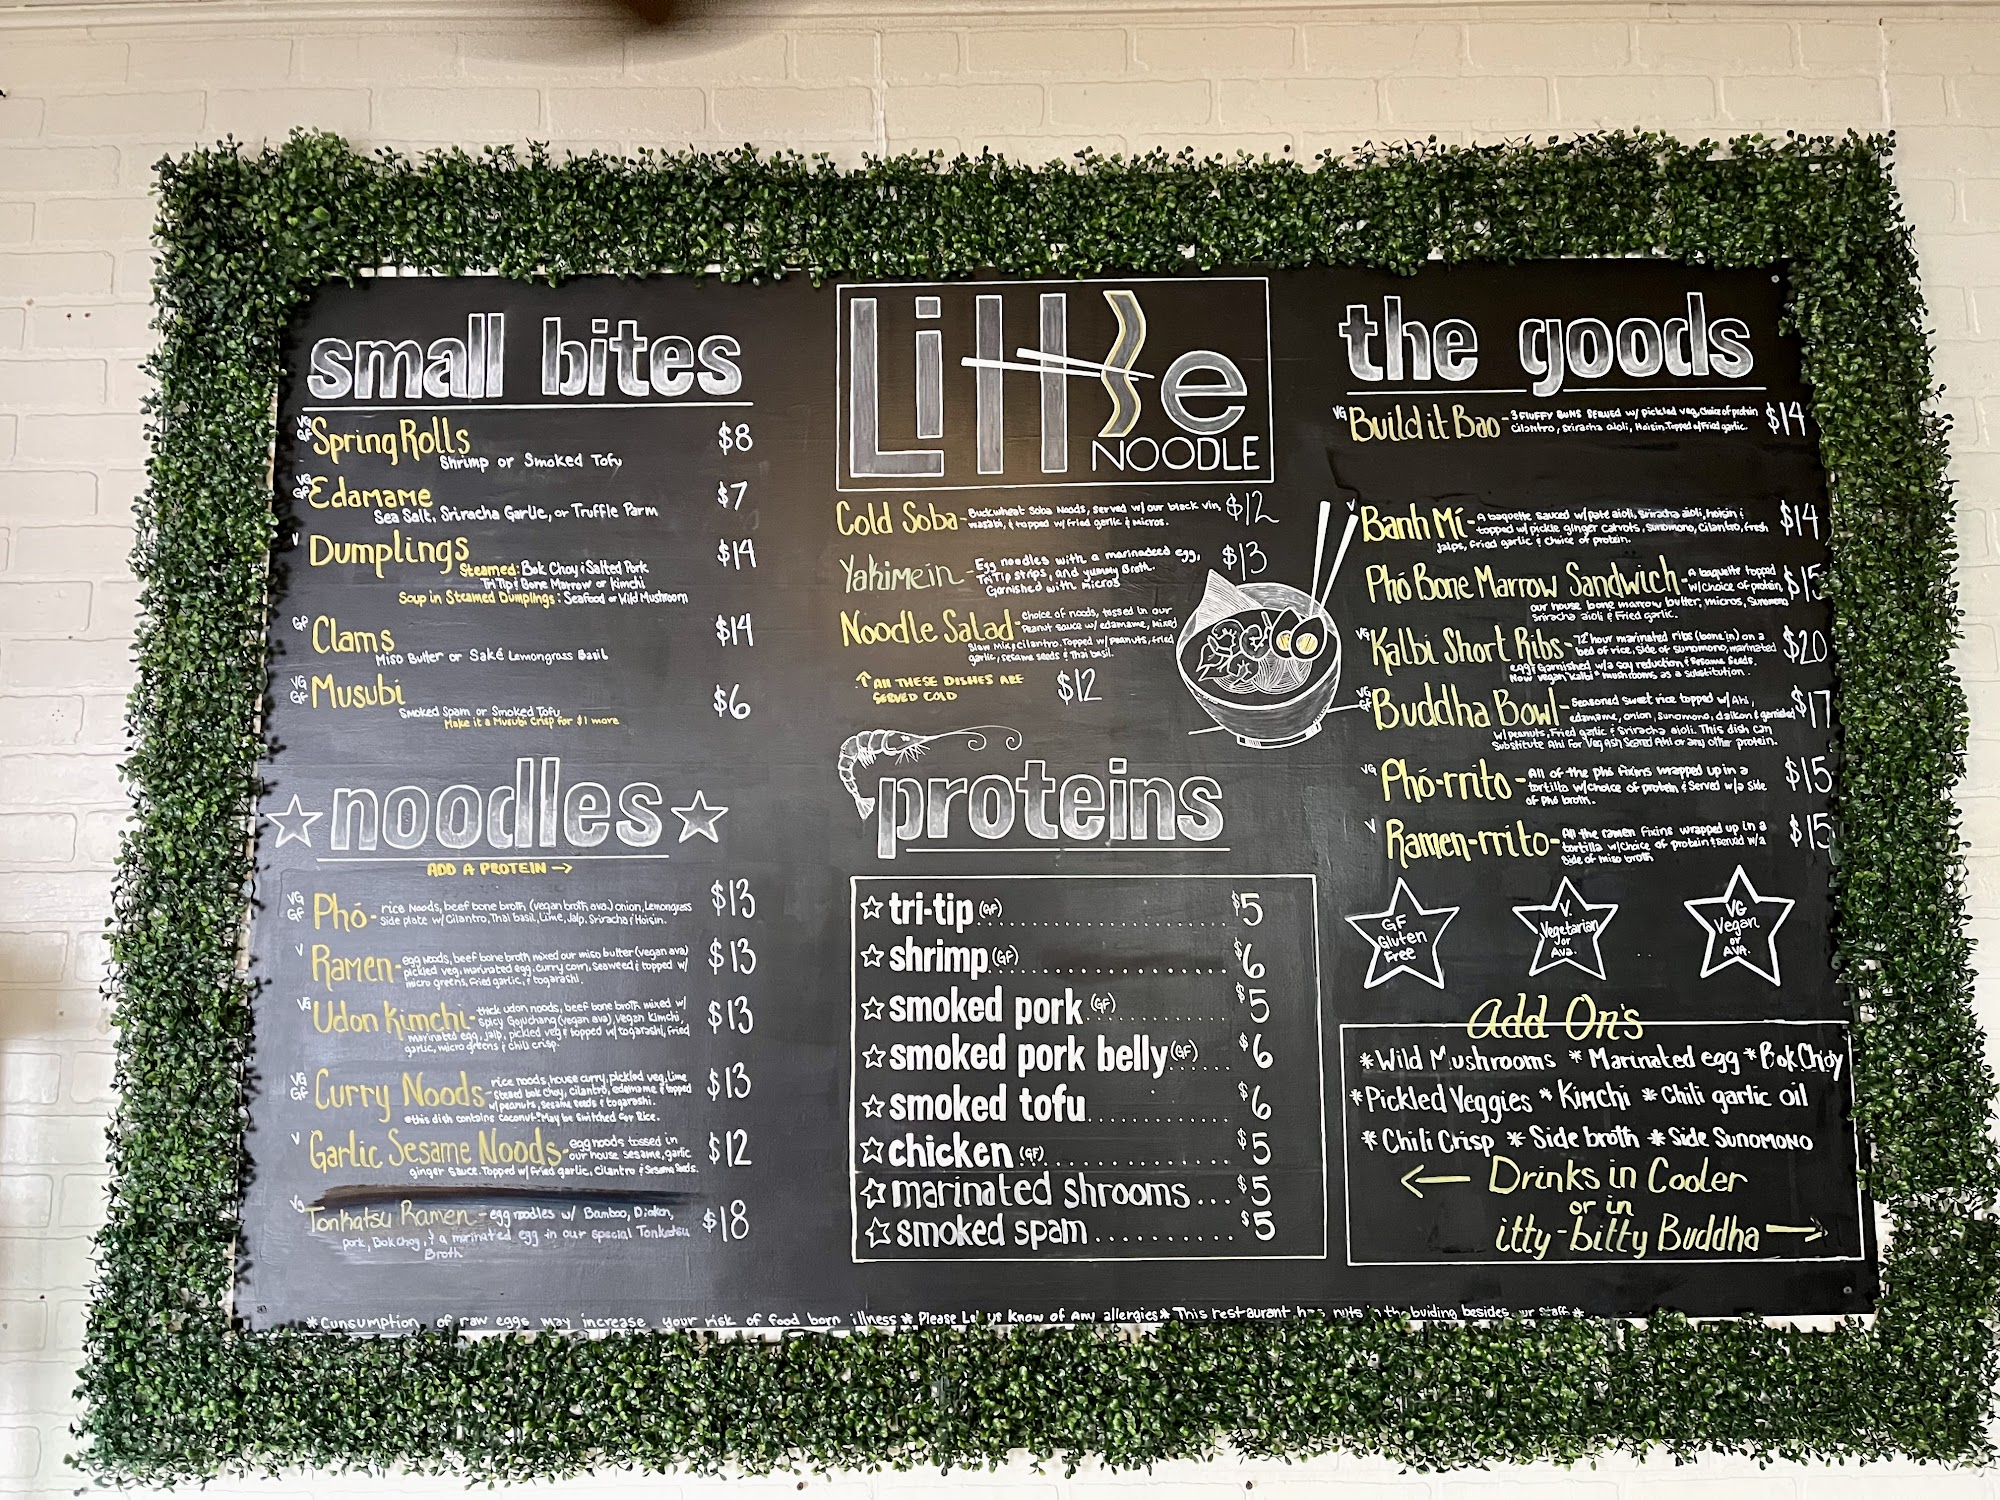 small bites
VG
GF
Spring Rolls $8
Shrimp or Smoked Tofu
VG
GF
Edamame $7
Sea Salt, Sriracha Garlic, or Truffle Parm
V
Dumplings $14
Steamed: Bok Choy & Salted Pork
Tri Tip & Bone Marrow or Kimchi
Soup in Steamed Dumplings: Seafood or Wild Mushroom
GF
Clams $14
Miso Butter or Saké Lemongrass Basil
VG
GF
Musubi $6
Smoked Spam or Smoked Tofu
Make it a Musubi Crisp for $1 more
noodles
ADD A PROTEIN →
VG
GF
Phó- rice noods, beef bone broth (vegan broth ava.) onion, Lemongrass $13
side plate w/ Cilantro, Thai basil, Lime, Jalp. Sriracha & Hoisin.
V
Ramen- egg noods, beef bone broth mixed our miso butter (vegan ava) $13
pickled veg, marinated egg, curry corn, seaweed & topped w/
micro greens, fried garlic, & togarashi.
VG
Udon Kimchi- thick udon noods, beef bone broth mixed w/ $13
spicy Gojuchang (vegan ava), vegan Kimchi,
marinated egg, jalp, pickled veg & topped w/ togarashi, fried
garlic, micro greens & chili crisp.
VG
GF
Curry Noods- rice noods, house curry, pickled veg, Lime $13
steamed bok choy, cilantro, edamame & topped
w/ peanuts, sesame seeds & togarashi.
*this dish contains coconut* May be Switched for Rice.
V
Garlic Sesame Noods- egg noods tossed in $12
our house sesame, garlic
ginger sauce. Topped w/ fried garlic, Cilantro & Sesame Seeds.
Vg
Tonkatsu Ramen- egg noodles w/ Bamboo, Diakon, $18
pork, Bok choy, & a marinated egg in our special Tonkatsu
Broth
Little
NOODLE
Cold Soba- Buckwheat Soba Noods, served w/ our black vin, $12
wasabi, & topped w/ fried garlic & micros.
Yakimein- Egg noodles with a marinadeed egg, $13
Tri Tip strips, and yummy Broth.
Garnished with micros
Noodle Salad- Choice of noods, tossed in our
Peanut sauce w/ edamame, mixed
Slaw Mix, cilantro. Topped w/ peanuts, fried
garlic, sesame seeds & Thai basil.
↑ All THESE DISHES ARE $12
SERVED COLD
proteins
☆ tri-tip (GF) $5
☆ shrimp (GF) $6
☆ smoked pork (GF) $5
☆ smoked pork belly (GF) $6
☆ smoked tofu $6
☆ chicken (GF) $5
☆ marinated shrooms ... $5
☆ smoked spam $5
the goods
VG
Build it Bao- 3 FLUFFY BUNS SERVED w/ pickled veg, choice of protein $14
Cilantro, Sriracha aioli, Hoisin. Topped w/ Fried garlic.
V
Banh Mí- A baguette sauced w/ pate aioli, sriracha aioli, hoisin & $14
topped w/ pickle ginger carrots, sunomono, cilantro, fresh
jalps, fried garlic & choice of protein.
Phó Bone Marrow Sandwich- A baguette topped $15
w/ choice of protein,
our house bone marrow butter, micros, Sunomono
Sriracha aioli & Fried garlic.
VG
Kalbi Short Ribs- 72 hour marinated ribs (bone in) on a $20
bed of rice, side of sunomono, marinated
egg & Garnished w/ a soy reduction & Sesame Seeds.
Now vegan "Kalbi" mushrooms as a substitution.
VG
GF
Buddha Bowl- Seasoned sweet rice topped w/ Ahi, $17
edamame, onion, sunomono, daikon & garnished
w/ peanuts, Fried garlic & Sriracha aioli. This dish can
Substitute Ahi for Veg Ash Seared Ahi or any other protein.
VG
Phó-rrito- All of the phó fixins wrapped up in a $15
tortilla w/ choice of protein & Served w/ a side
of phó broth.
V
Ramen-rrito- All the ramen fixins wrapped up in a $15
tortilla w/ choice of protein & served w/ a
side of miso broth
GF
Gluten
Free
V.
Vegetarian
or
Ava.
VG
Vegan
or
AVA.
Add On's
*Wild Mushrooms *Marinated egg *Bok Choy
*Pickled Veggies *Kimchi *Chili garlic oil
*Chili Crisp *Side broth *Side Sunomono
← Drinks in Cooler
or in
itty-bitty Buddha →
*Cunsumption of raw eggs may increase your risk of food born illness* Please Let us Know of Any allergies* This restaurant has nuts in the buiding besides our staff*